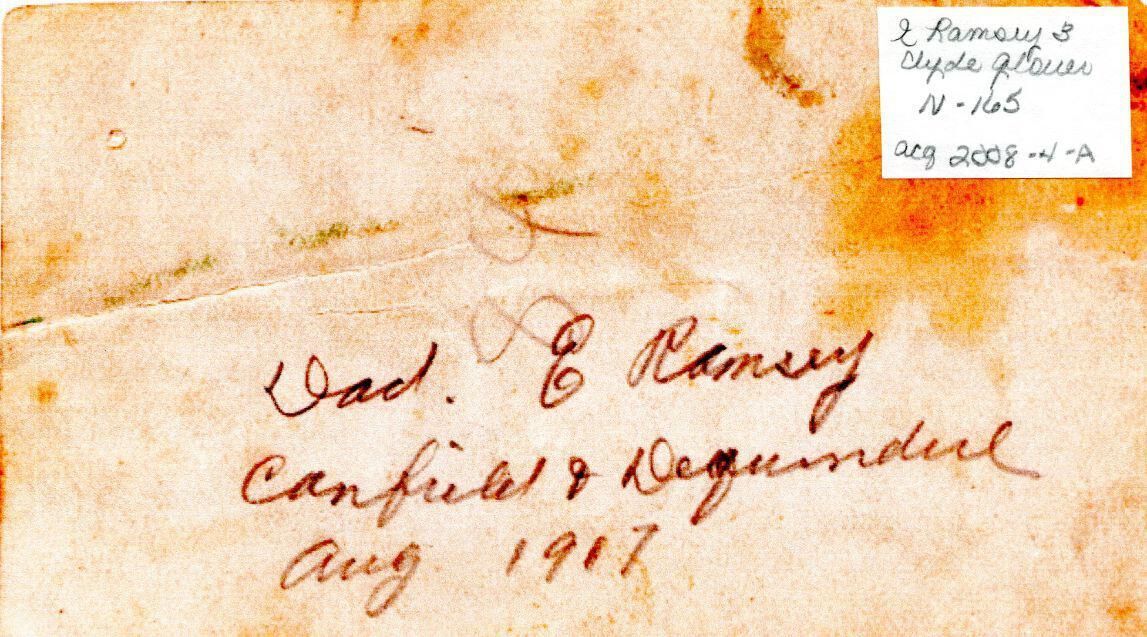 E Ramsey 3
Clyde Glover
N-165
acq 2008-4-A
Dad. E Ramsey
Canfield & Dequindre
Aug 1917